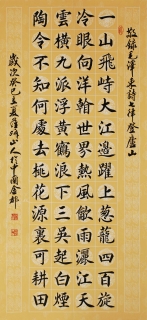 敬錄毛澤東詩七律登廬山
一山飛峙大江邊躍上葱蘢四百旋
冷眼向洋看世界熱風吹雨灑江天
雲橫九派浮黃鶴浪下三吳起白煙
陶令不知何處去桃花源裏可耕田
歲次癸巳夏山人於中國